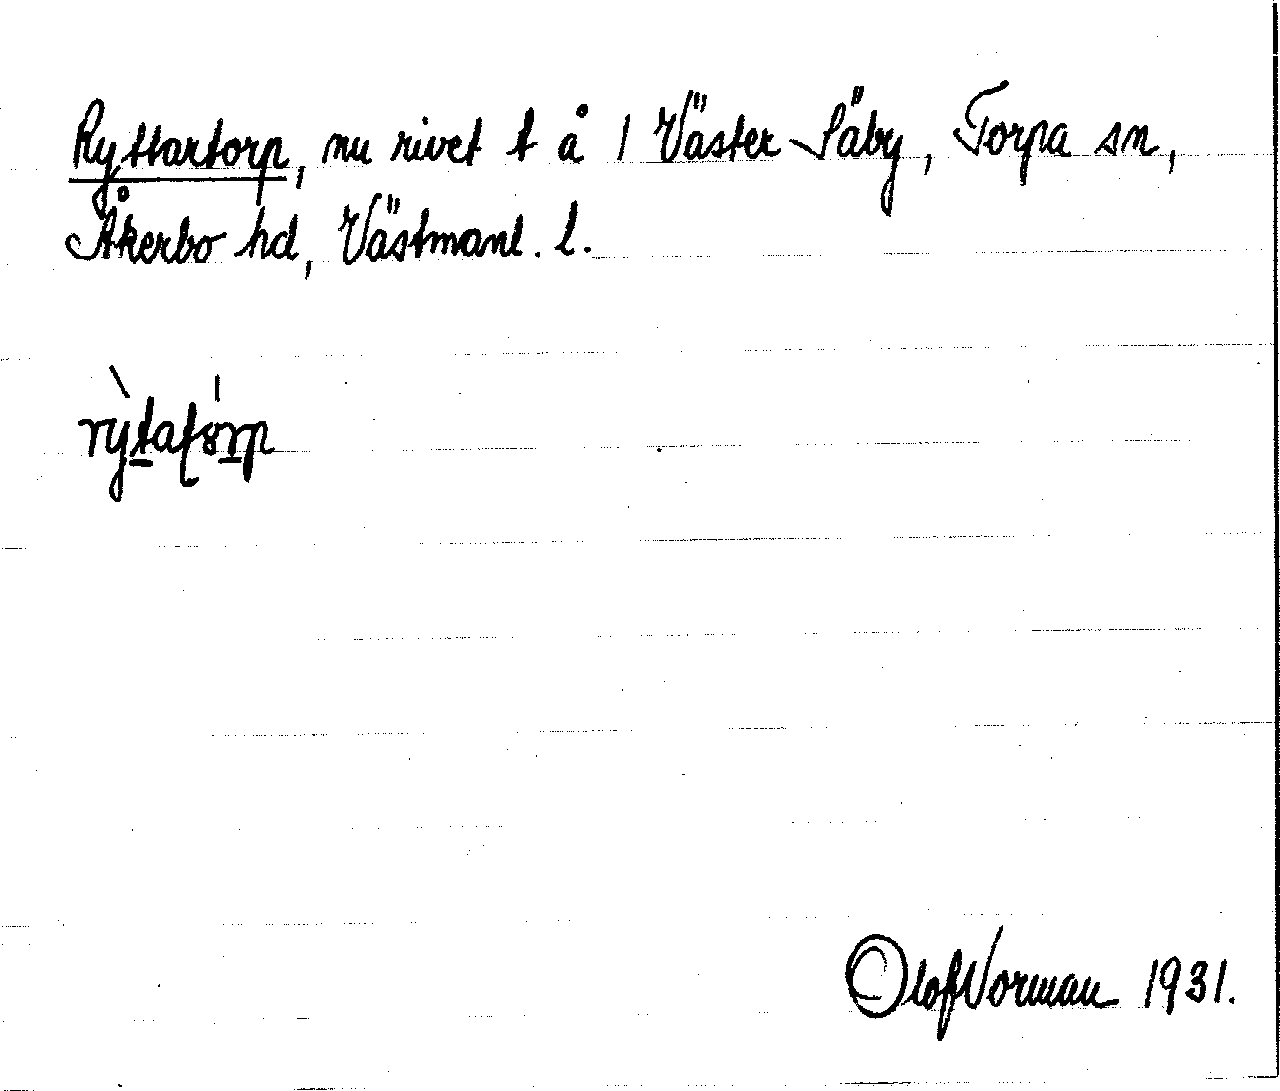 Ryttartorp, nu rivet t å 1 Väster Säby, Torpa sn,
Åkerbo hd, Västmanl. l.
rỳtatórp
Olof Norman 1931.